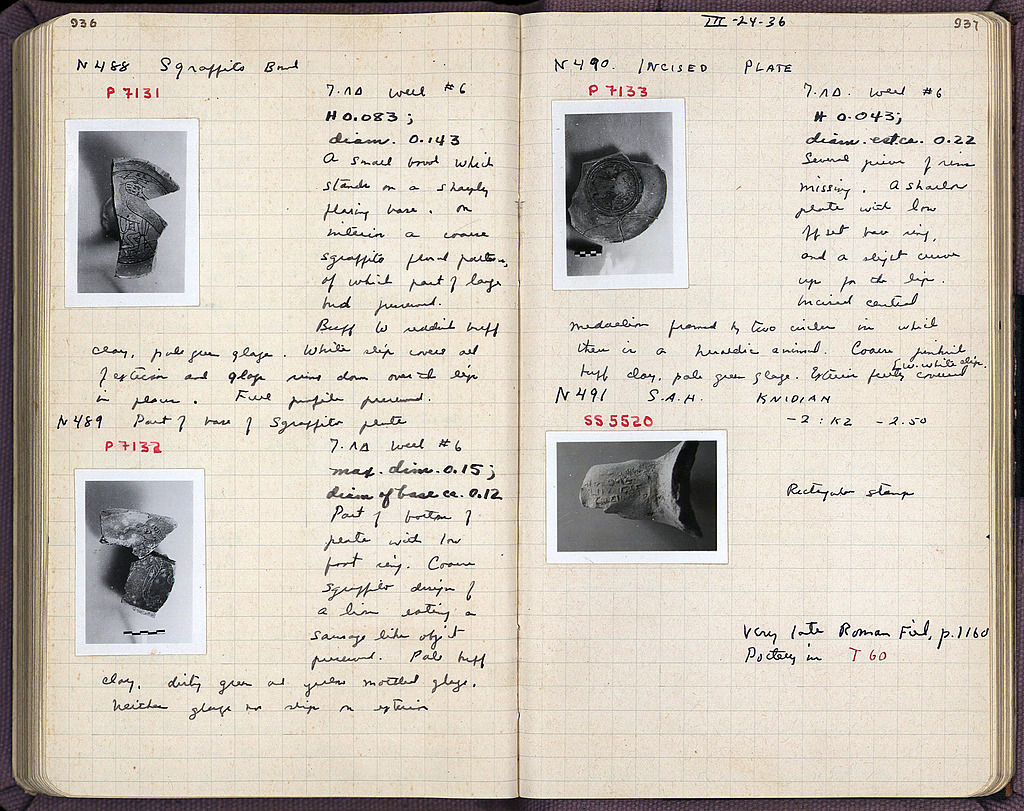 936
N 488 Sgraffito Bowl
P 7131
7. ΛΔ well #6
H 0.083;
diam. 0.143
A small bowl which
stands on a sharply
flaring base. On
interior a coarse
sgraffito floral pattern,
of which part of large
bud preserved.
Buff to reddish buff
clay, pale green glaze. White slip covers all
of exterior and glaze runs down over the lip
in places. Full profile preserved.
N 489 Part of base of Sgraffito plate
P 7132
7. ΛΔ well #6
max. dim. 0.15;
diam of base ca. 0.12
Part of bottom of
plate with low
foot ring. Coarse
sgraffito design of
a lion eating a
sausage like object
preserved. Pale buff
clay, dirty green and yellow mottled glaze.
Neither glaze nor slip on exterior
III-24-36
937
N 490. INCISED PLATE
P 7133
7. ΛΔ. well #6
H 0.043;
diam. est. ca. 0.22
Several pieces of rim
missing. A shallow
plate with low
offset base ring,
and a slight curve
up for the lip.
Incised central
medallion framed by two circles in which
there is a heraldic animal. Coarse pinkish
buff clay, pale green glaze. Exterior partly covered
w. white slip.
N 491 S.A.H. KNIDIAN
SS 5520
-2 : K2 -2.50
Rectangular stamp
Very late Roman Fill, p. 1160
Pottery in T 60